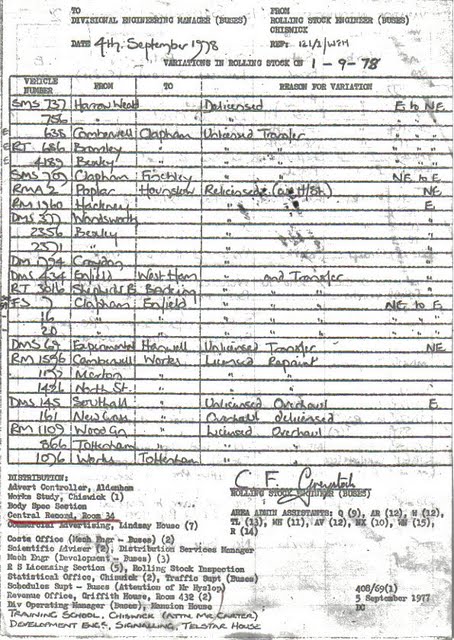 TO FROM
DIVISIONAL ENGINEERING MANAGER (BUSES) ROLLING STOCK ENGINEER (BUSES)
CHISWICK
DATE 4th. September 1978 REF: 121/2/WPM
VARIATIONS IN ROLLING STOCK ON 1-9-78
VEHICLE NUMBER FROM TO REASON FOR VARIATION
SMS 737 Harrow Weald Delicensed E to NE
756 " " " " "
E 638 Camberwell Clapham Unlicensed Transfer " " "
E RT 686 Bromley " " " " " "
E 4189 Bexley " " " " " "
SMS 769 Clapham Finchley " " NE to E
RMA 2 Poplar Hounslow Relicensed NE
RM 1360 Hackney " E
DMS 377 Wandsworth " "
2356 Bexley " "
2371 " " "
DM Croydon " "
DMS 434 Enfield West Ham " and Transfer "
RT 3016 Shepherds B Barking " " " "
FS 7 Clapham Enfield " " NE to E
16 " " " " " " "
20 " " " " " " "
DMS 69 Experimental Hanwell Unlicensed Transfer NE
RM 1596 Camberwell Works Licensed Repaint
Merton " " "
1426 North St. " " "
DMS 145 Southall " Unlicensed Overhaul E
161 New Cross " Overhaul delicensed
RM 1109 Wood Gn " Licensed Overhaul
866 Tottenham " " "
1096 Works Tottenham " "
DISTRIBUTION:
Advert Controller, Aldenham
Works Study, Chiswick (1)
Body Spec Section
Central Record, Room 34
Commercial Advertising, Lindsay House (7)
Costs Office (Mech Engr - Buses) (2)
Scientific Adviser (2), Distribution Services Manager
Mech Engr (Development - Buses) (3)
R S Licensing Section (5), Rolling Stock Inspection
Statistical Office, Chiswick (2), Traffic Supt (Buses)
Schedules Supt - Buses (Attention of Mr Hyslop)
Revenue Office, Griffith House, Room 432 (2)
Div Operating Manager (Buses), Mansion House
TRAINING SCHOOL, CHISWICK (ATTN. MR CARTER)
DEVELOPMENT ENG'S, SIGNALLING, TELSTAR HOUSE
C. F.
ROLLING STOCK ENGINEER (BUSES)
AREA ADMIN ASSISTANTS: Q (9), AR (12), W (12),
TL (13), WH (11), AV (12), NX (10), WN (15),
R (14)
408/69(1)
5 September 1977
DG